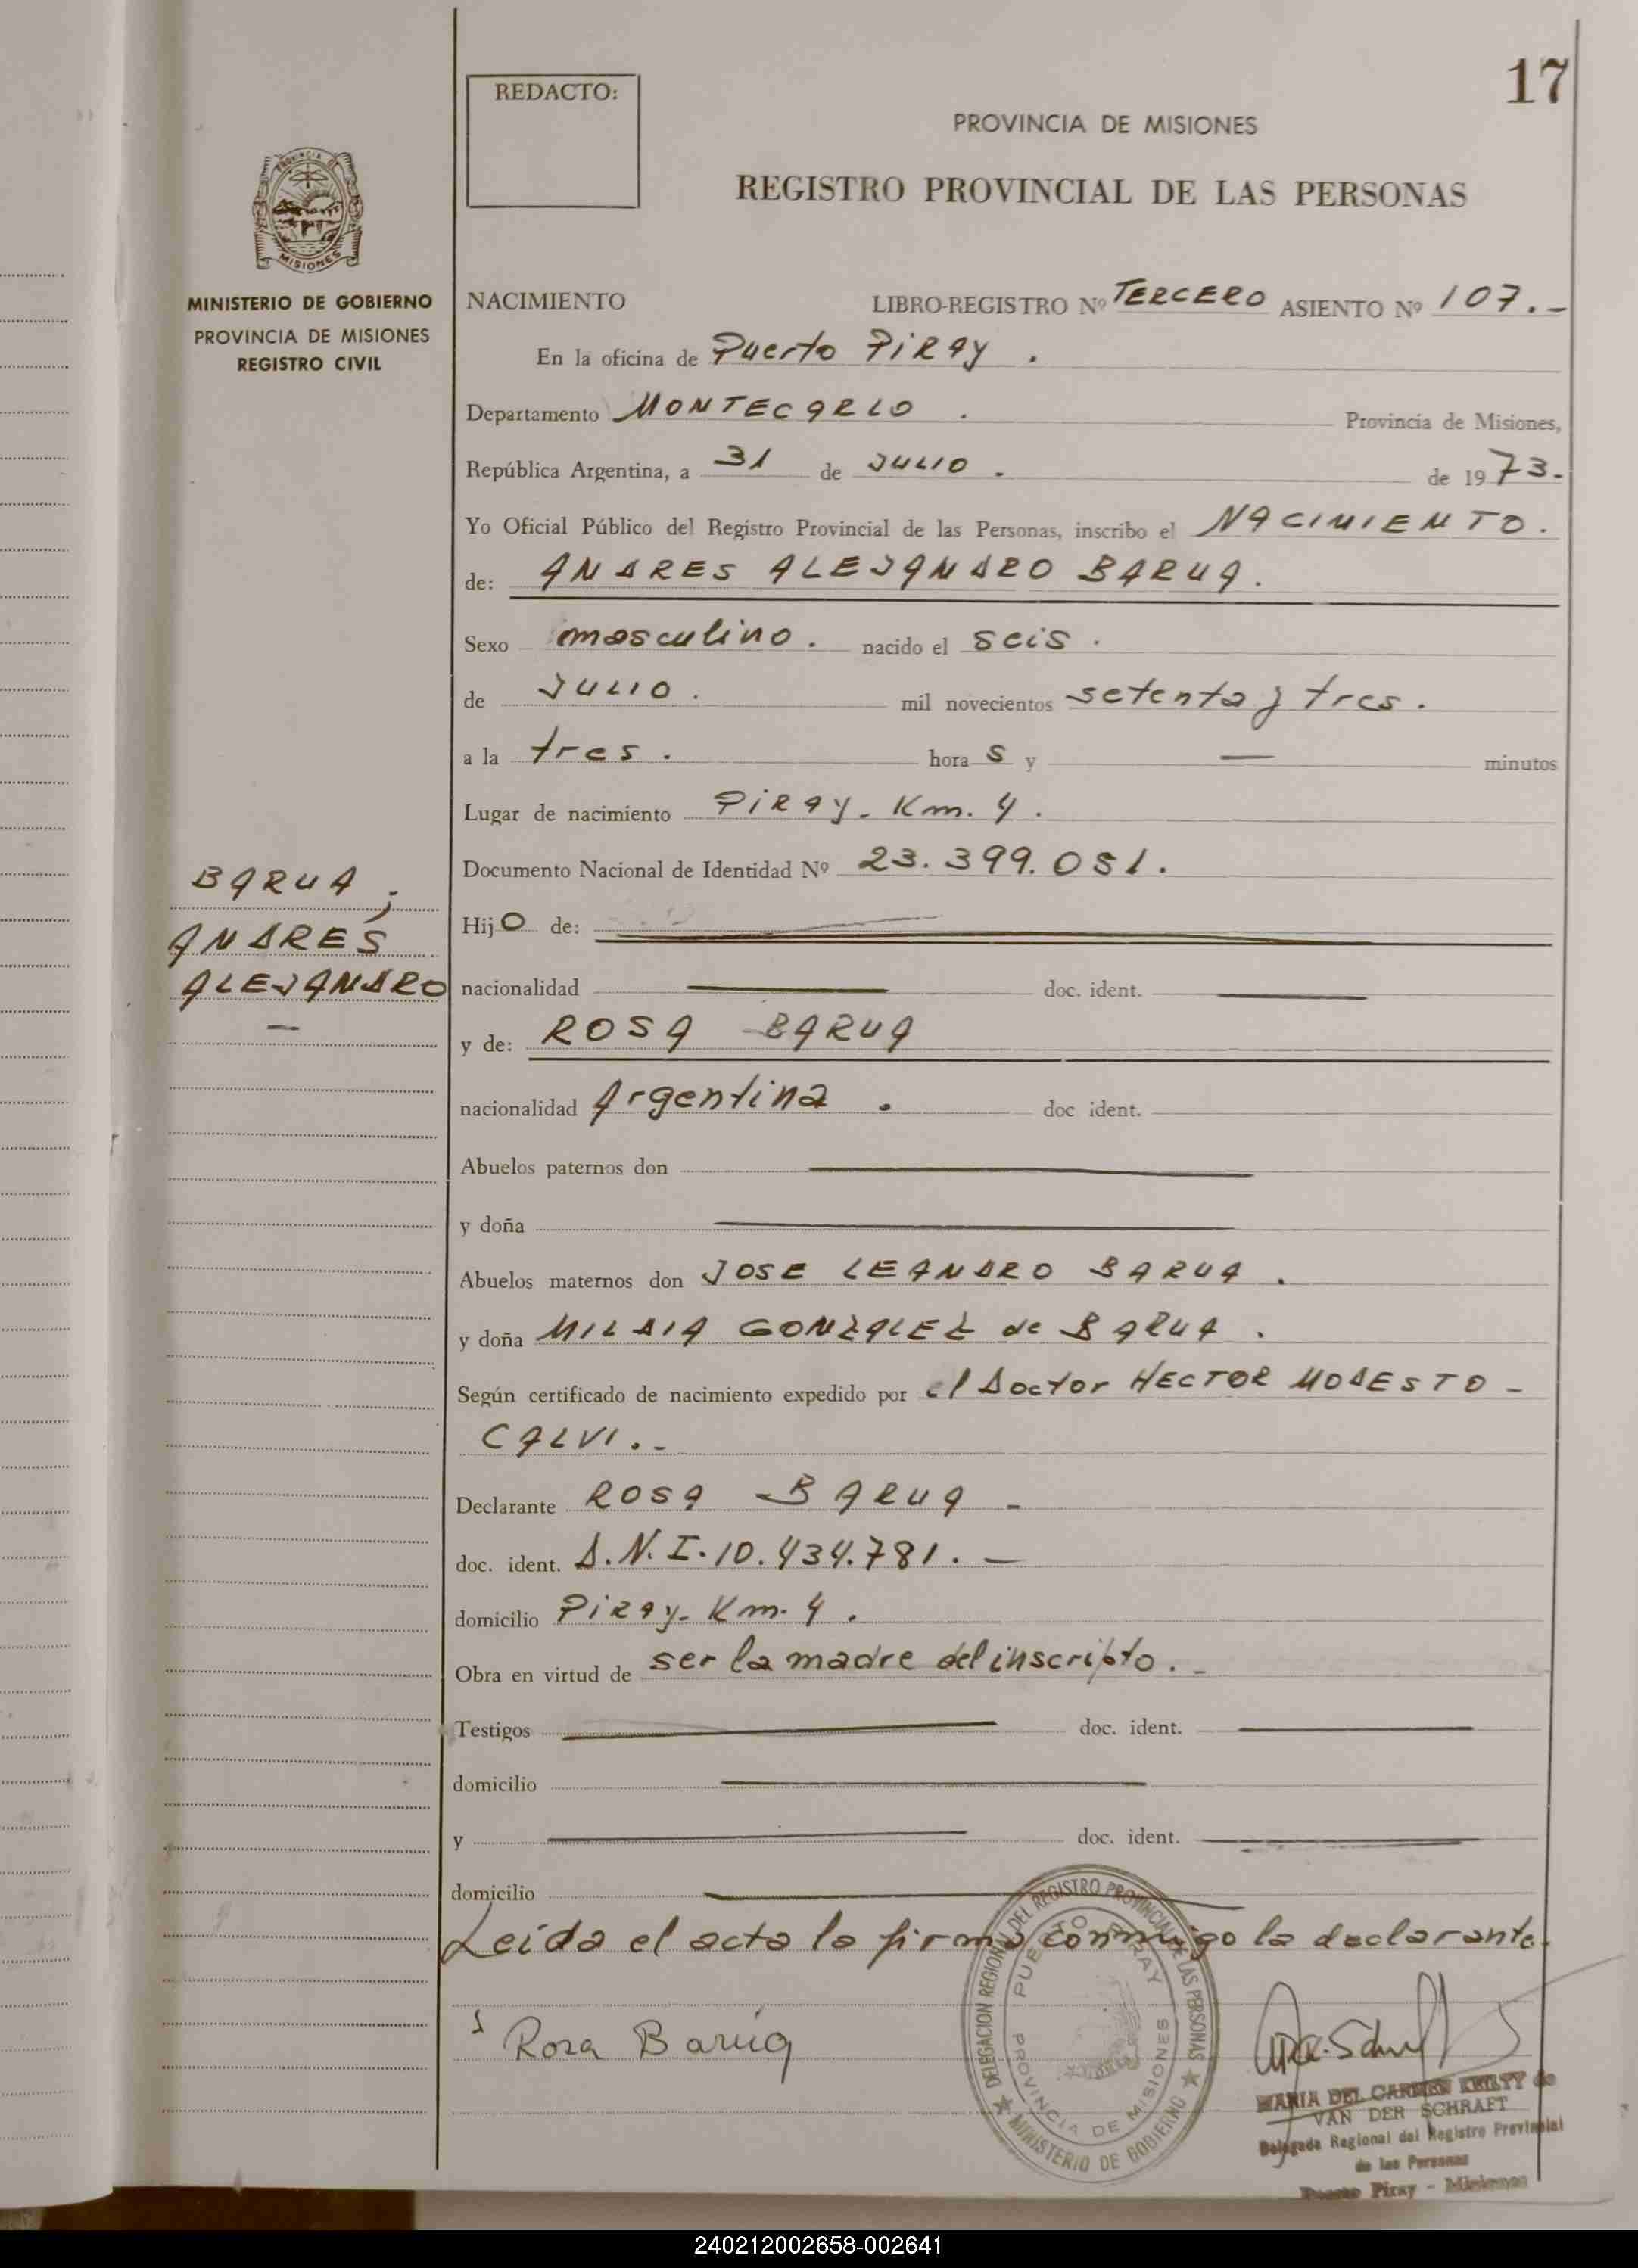 17
REDACTO:
PROVINCIA DE MISIONES
REGISTRO PROVINCIAL DE LAS PERSONAS
PROVINCIA DE
MISIONES
MINISTERIO DE GOBIERNO
PROVINCIA DE MISIONES
REGISTRO CIVIL
NACIMIENTO LIBRO-REGISTRO Nº TERCERO ASIENTO Nº 107.-
En la oficina de Puerto PiRAy.
Departamento MONTECARLO. Provincia de Misiones,
República Argentina, a 31 de JULIO. de 1973.-
Yo Oficial Público del Registro Provincial de las Personas, inscribo el NACIMIENTO.
de: ANDRES ALEJANDRO BARUA.
Sexo masculino. nacido el seis.
de JULIO. mil novecientos setenta y tres.
a la tres. hora s y — minutos
Lugar de nacimiento PiRAy- Km. 4.
Documento Nacional de Identidad Nº 23.399.051.
BARUA,
ANDRES
ALEJANDRO
—
Hijo de:
nacionalidad — doc. ident. —
y de: ROSA BARUA
nacionalidad Argentina. doc ident.
Abuelos paternos don —
y doña —
Abuelos maternos don JOSE LEANDRO BARUA.
y doña MILDIA GONZALEZ de BARUA.
Según certificado de nacimiento expedido por el Doctor HECTOR MODESTO-
CALVI.-
Declarante ROSA BARUA-
doc. ident. D.N.I. 10.434.781.—
domicilio PiRAy- Km. 4.
Obra en virtud de ser la madre del inscripto.-
Testigos — doc. ident. —
domicilio —
y — doc. ident. —
domicilio —
Leida el acta la firma conmigo la declarante.
Rosa Barúa
DELEGACION REGIONAL DEL REGISTRO PROVINCIAL DE LAS PERSONAS
MINISTERIO DE GOBIERNO
PUERTO PIRAY
PROVINCIA DE MISIONES
MARIA DEL CARMEN de
VAN DER SCHRAFT
Delegada Regional del Registro Provincial
de las Personas
Puerto Piray - Misiones
240212002658-002641